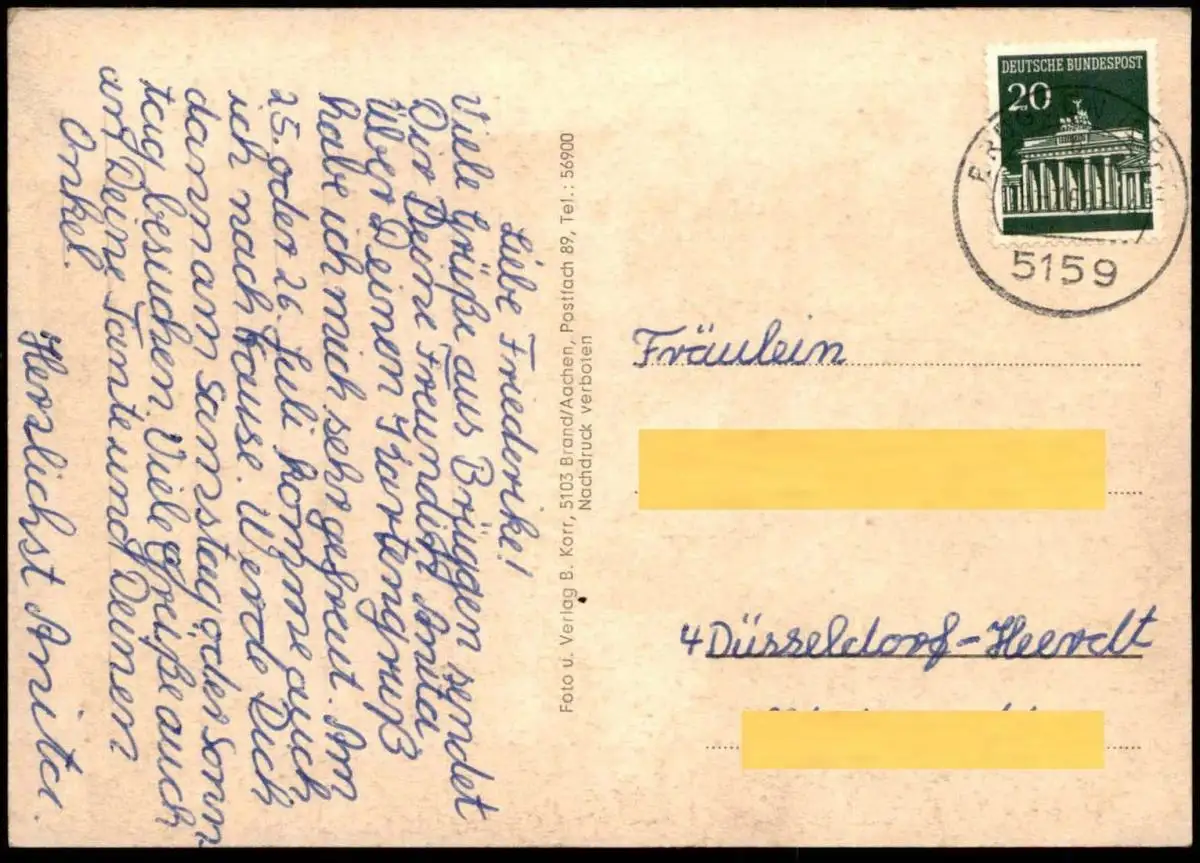 Liebe Friederike!
Viele Grüße aus Brüggen sendet
Dir Deine Freundin Anita
Über Deinen Kartengruß
habe ich mich sehr gefreut. Am
25. oder 26. Juli komme auch
ich nach Hause. Werde Dich
dann am Samstag oder Sonn
tag besuchen. Viele Grüße auch
an Deine Tante und Deinen
Onkel.
Herzlichst Anita.
Foto u. Verlag B. Korr, 5103 Brand/Aachen, Postfach 89, Tel.: 56900
Nachdruck verboten
DEUTSCHE BUNDESPOST
20
5159
Fräulein
4 Düsseldorf-Heerdt